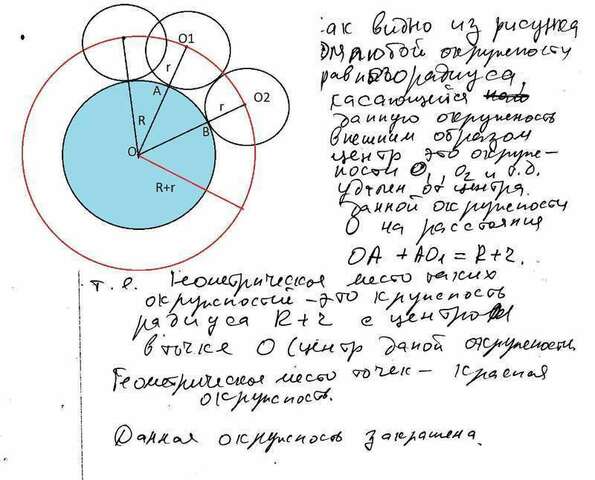 ак видно из рисунка
для любой окружности
равного радиуса,
касающейся
данную окружность
внешним образом
центр это окруж-
ности О1, О2 и т.д.
удален от центра
данной окружности
О на расстояния
OA + AO1 = R+r.
т. е. Геометрическое место таких
окружностей - это кружность
радиуса R+r с центром
в точке О (центр даной окружности.
Геометрическое место точек - красная
окружность.
Данная окружность закрашена.
O1
r
A
r
O2
R
B
O
R+r